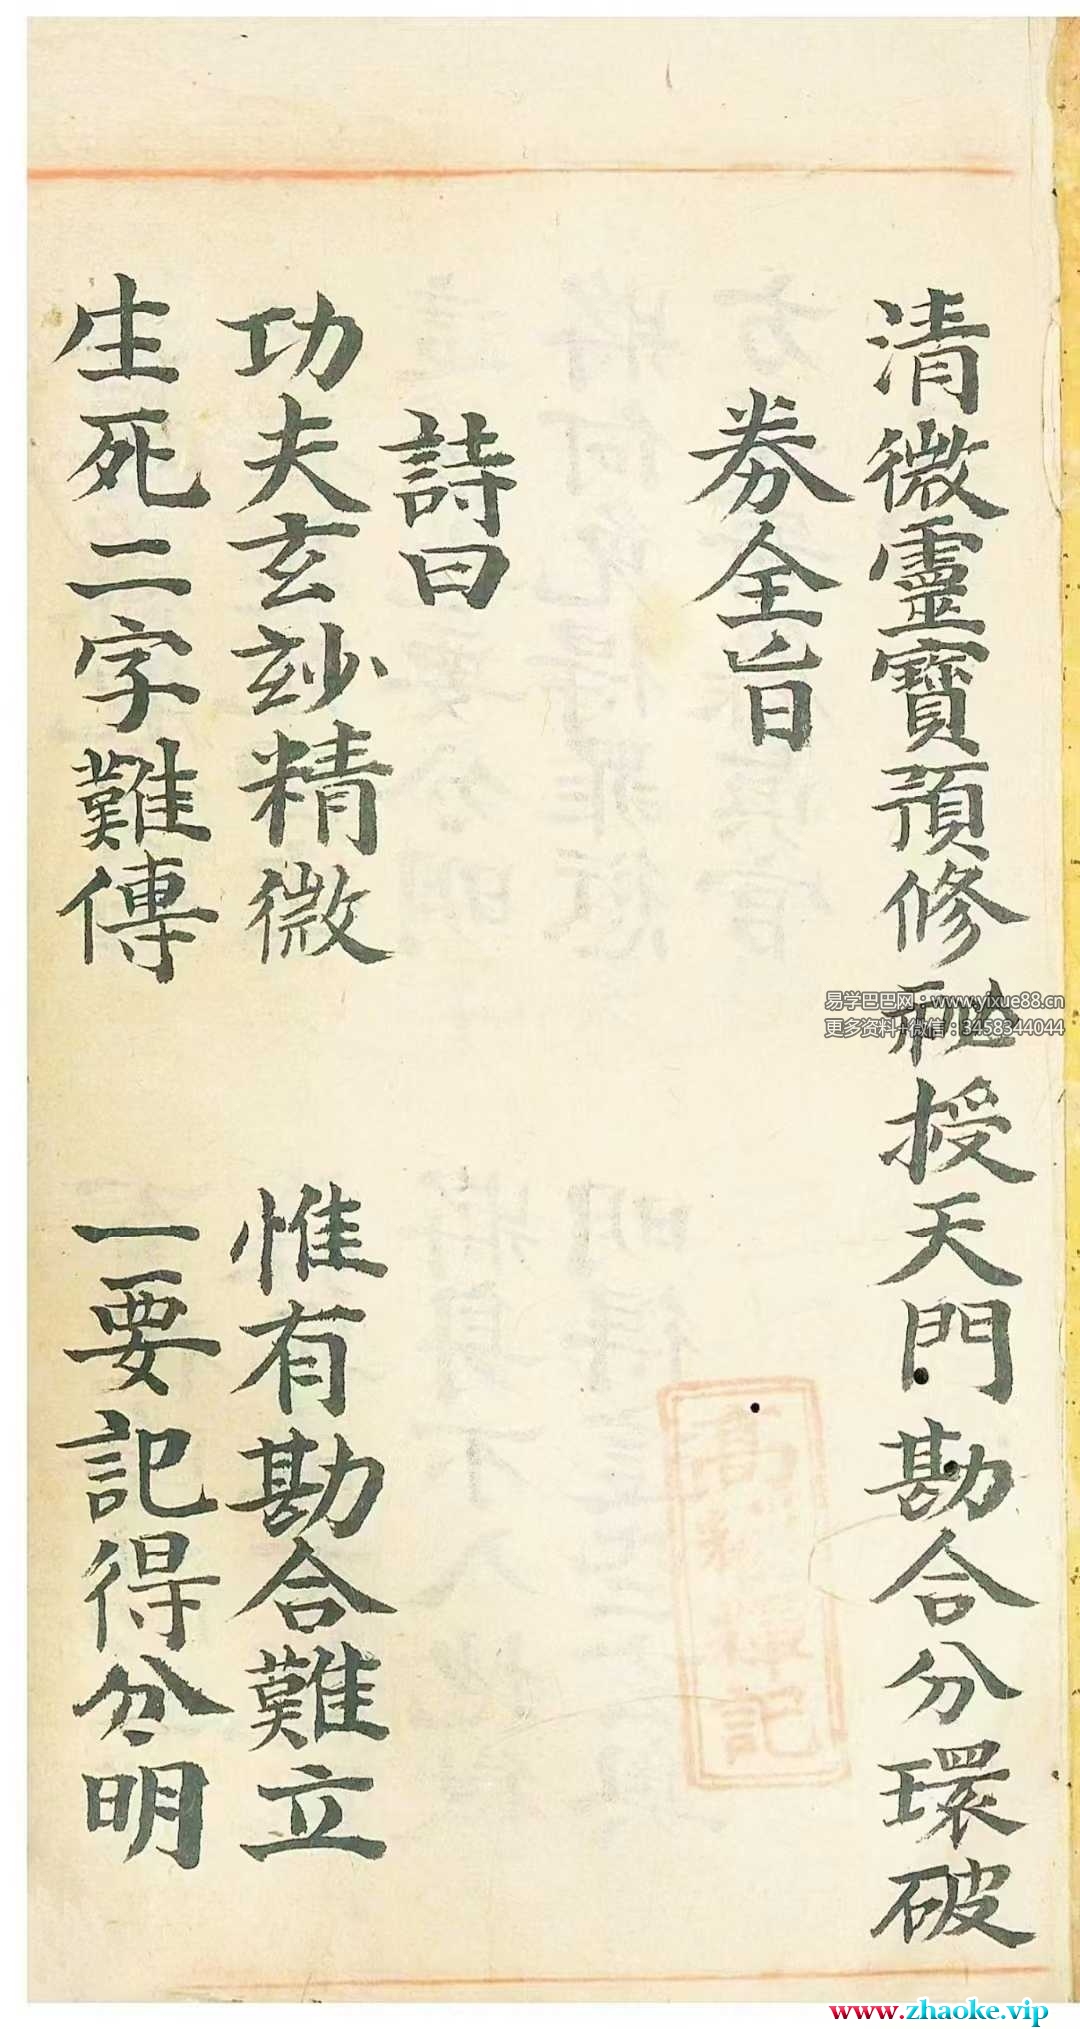 清微靈寶預修秘授天門勘合分環破
券全旨
詩曰
功夫玄玅精微 惟有勘合難立
生死二字難傳 一要記得分明
易学巴巴网：www.yixue88.cn
更多资料+微信：3458344044
記
www.zhaoke.vip